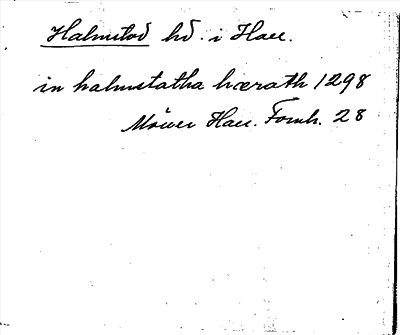 Halmstad hd. i Hall.
in halmstatha hærath 1298
Möller Hall. Fornh. 28